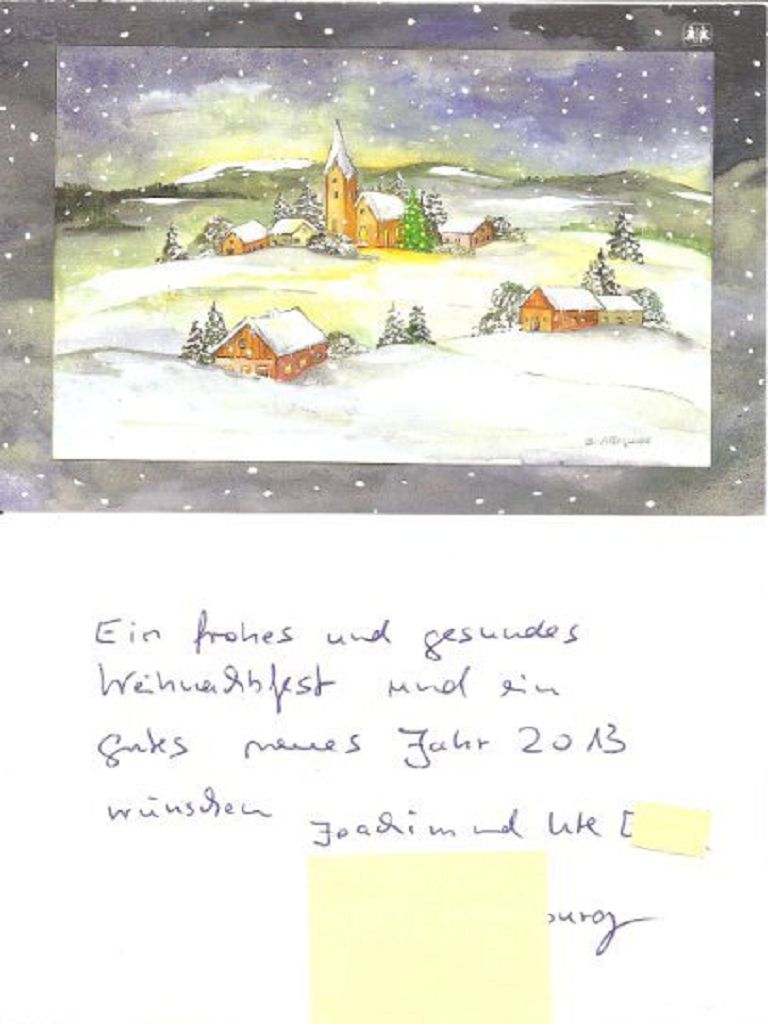 Ein frohes und gesundes
Weihnachtsfest und ein
gutes neues Jahr 2013
wünschen
Joachim und Ute
burg